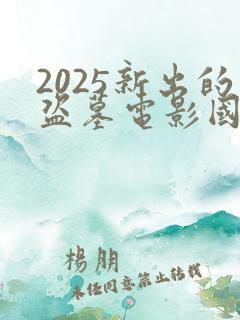 2025新出的
盗墓電影國
楊朋
未任同意禁止转载